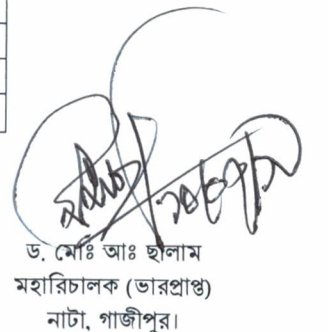 ড. মোঃ আঃ ছালাম
মহারিচালক (ভারপ্রাপ্ত)
নাটা, গাজীপুর।